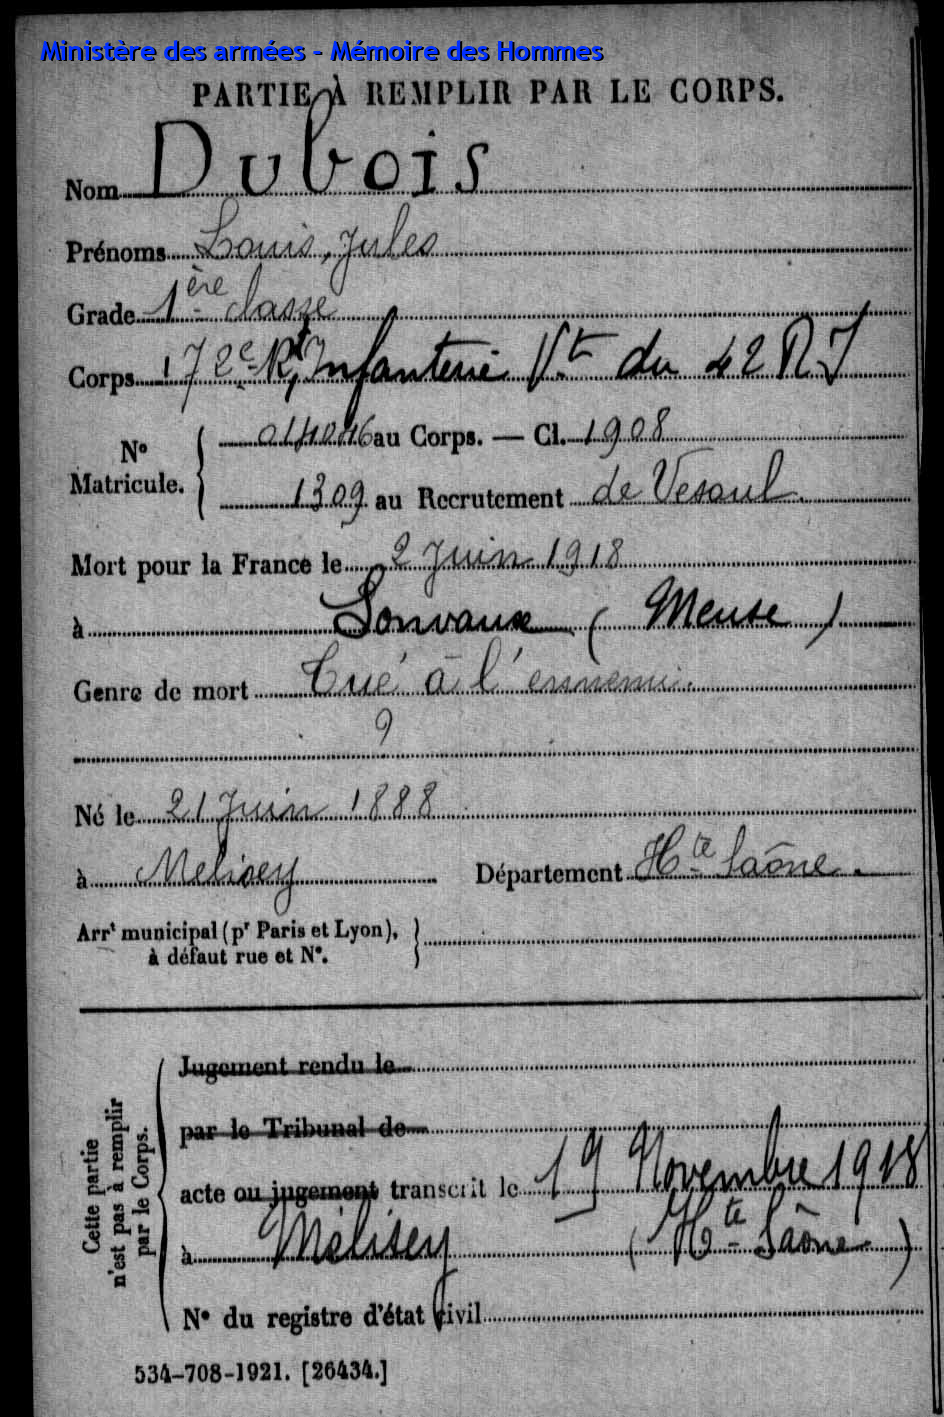 Ministère des armées - Mémoire des Hommes
PARTIE À REMPLIR PAR LE CORPS.
Nom Dubois
Prénoms Louis, Jules
Grade 1ère classe
Corps 172e Rt Infanterie Vt du 42 RI
N° Matricule. au Corps. — Cl. 1908
1309 au Recrutement de Vesoul.
Mort pour la France le 2 Juin 1918
à Louvaux (Meuse)
Genre de mort Tué à l'ennemi.
?
Né le 21 Juin 1888
à Melisey Département Hte Saône.
Arrt municipal (pr Paris et Lyon),
à défaut rue et N°.
Cette partie
n'est pas à remplir
par le Corps.
Jugement rendu le
par le Tribunal de
acte ou jugement transcrit le 19 Novembre 1918
à Mélisey (Hte Saône)
N° du registre d'état civil
534-708-1921. [26434.]